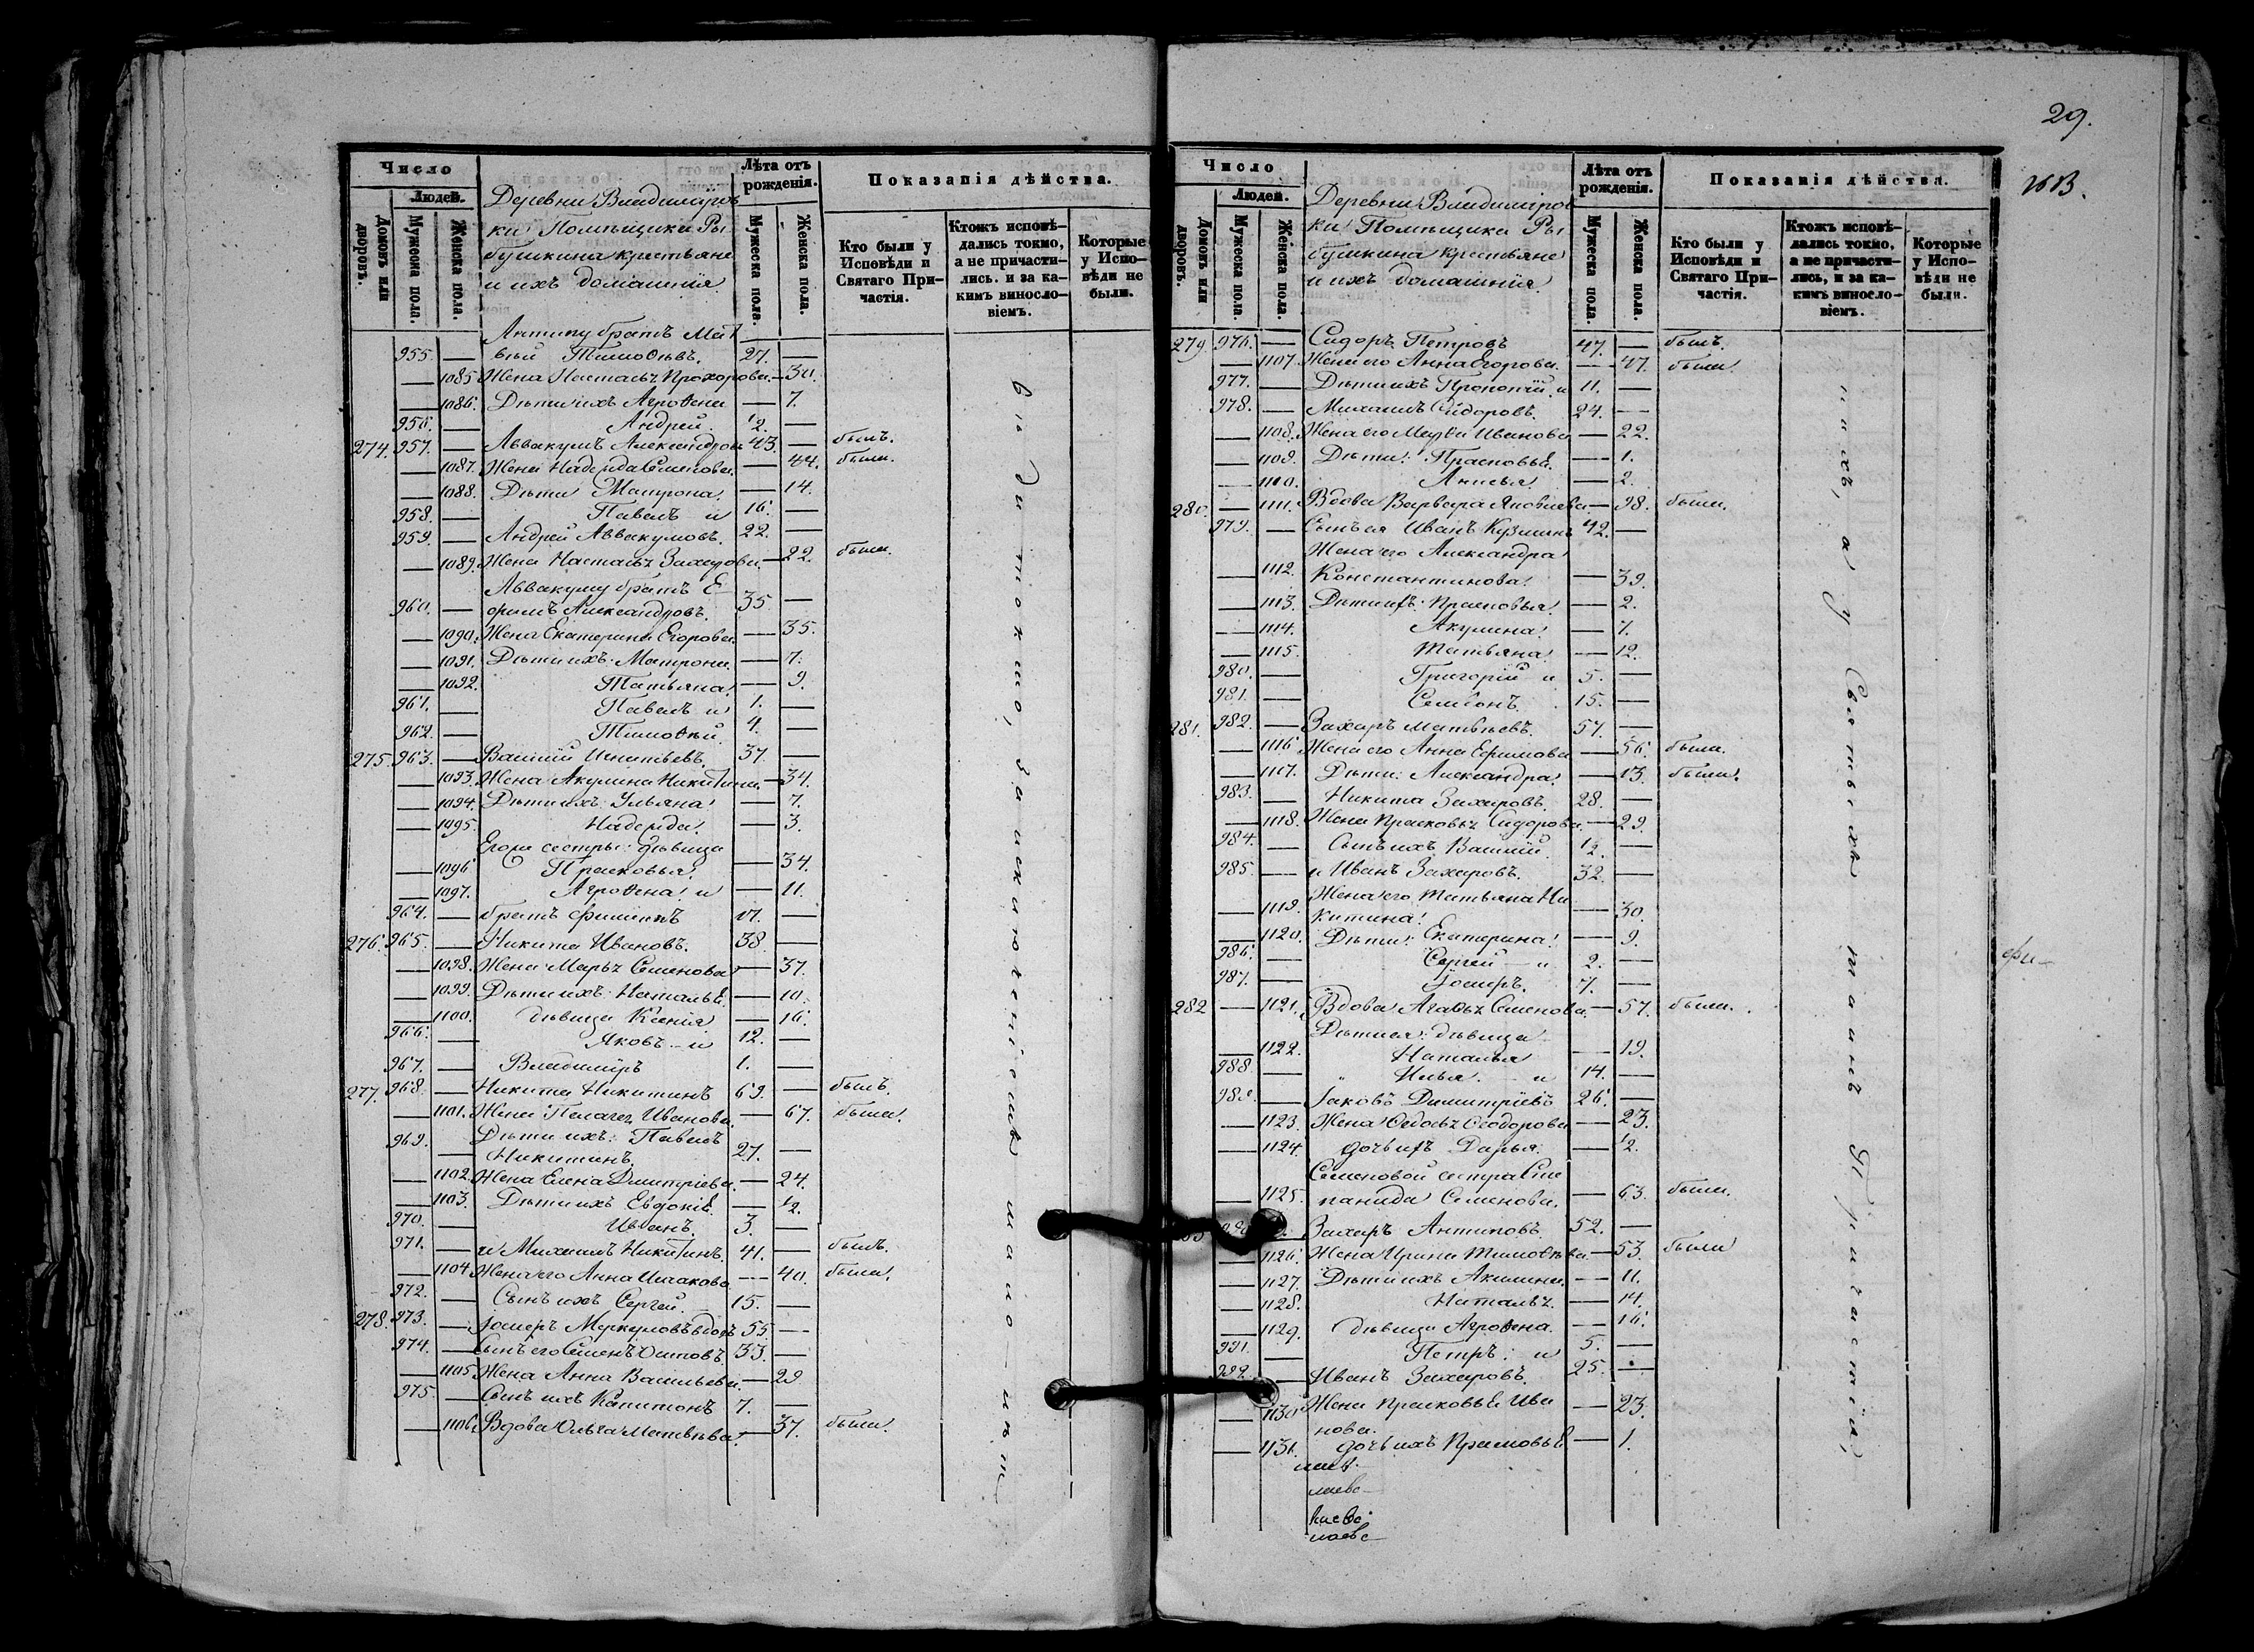 Число
Людей.
Домовъ или дворовъ.
Мужеска пола.
Женска пола.
Деревни Владимиров
ки Помѣщика Ры
бушкина крестьяне
и ихъ домашнія.
Лѣта отъ рожденія.
Мужеска пола.
Женска пола.
Показанія дѣйства.
Кто были у Исповѣди и Святаго Причастія.
Ктожъ исповѣдались токмо, а не причастились, и за какимъ винословіемъ.
Которые у Исповѣди не были.
Антипу братъ Мат
955. — вѣй Тимоѳѣевъ. 27. —
— 1085 Жена Настасья Прохорова. — 30.
— 1086. Дѣти ихъ Агроѳена — 7.
956. — Андрей. 1/2. —
274. 957. — Аввакумъ Александровъ 43. — былъ.
— 1087. Жена Надежда Семенова. — 44. была.
— 1088. Дѣти Матрона. — 14.
958. — Павелъ и 16. —
959. — Андрей Аввакумовъ. 22. —
— 1089. Жена Настасья Захарова. — 22. была.
Аввакуму братъ Е
960. — фимъ Александровъ. 35. —
— 1090. Жена Екатерина Егорова. — 35.
— 1091. Дѣти ихъ: Матрона. — 7.
— 1092. Татьяна. — 9.
961. — Павелъ и 1. —
962. — Тимоѳей. 4. —
275. 963. — Василій Игнатьевъ. 37. —
— 1093. Жена Акулина Никитина. — 34.
— 1094. Дѣти ихъ: Ульяна — 7.
— 1095. Надежда. — 3.
сестры: дѣвица
— 1096 Прасковья. — 34.
— 1097. Агроѳена и — 11.
964. — братъ Филиппъ 17. —
276. 965. — Никита Ивановъ. 38. —
— 1098. Жена Марья Семенова — 37.
— 1099. Дѣти ихъ: Наталья. — 10.
— 1100. дѣвица Ксенія — 16.
966. — Яковъ и 12. —
967. — Владиміръ 1. —
277. 968. — Никита Никитинъ 69. — былъ.
— 1101. Жена Пелагея Иванова. — 67. была.
969. — Дѣти ихъ: Павелъ
Никитинъ. 27. —
— 1102. Жена Елена Димитріева. — 24.
— 1103. Дѣти ихъ Евдокія. — 1/2.
970. — Иванъ. 3. —
971. — и Михаилъ Никитинъ. 41. — былъ.
— 1104 Жена его Анна Исакова — 40. была.
972. — Сынъ ихъ Сергей. 15. —
278. 973. — Іосифъ Меркуловъ вдов 55. —
974. — Сынъ его Семенъ Осиповъ. 33. —
— 1105 Жена Анна Васильева. — 29
975. — Сынъ ихъ Капитонъ 7. —
— 1106. Вдова Ольга Матвѣева. — 37. была.
за исключеніемъ
29.
Число
Людей.
Домовъ или дворовъ.
Мужеска пола.
Женска пола.
Деревни Владимиров
ки Помѣщика Ры
бушкина крестьяне
и ихъ домашнія.
Лѣта отъ рожденія.
Мужеска пола.
Женска пола.
Показанія дѣйства.
Кто были у Исповѣди и Святаго Причастія.
Ктожъ исповѣдались токмо, а не причастились, и за какимъ винословіемъ.
Которые у Исповѣди не были.
279. 976. — Сидоръ Петровъ 47. — былъ.
— 1107. Жена его Анна Егорова. — 47. была.
977. — Дѣти ихъ Прокопій и 11. —
978. — Михаилъ Сидоровъ. 24. —
— 1108. Жена его Марья Иванова — 22.
— 1109. Дѣти: Прасковья. — 1.
— 1110. Анисья — 2.
280. — 1111. Вдова Варвара Яковлева — 98. была.
979. — Сынъ ея Иванъ Кузминъ 42. —
Жена его Александра
— 1112. Константинова. — 39.
— 1113. Дѣти ихъ: Прасковья. — 2.
— 1114. Акулина. — 7.
— 1115. Татьяна. — 12.
980. — Григорій и 5. —
981. — Семіонъ. 15. —
281. 982. — Захаръ Матвѣевъ. 57. —
— 1116 Жена его Анна Ефимова — 56. была.
— 1117. Дѣти: Александра. — 13. была.
983. — Никита Захаровъ. 28. —
— 1118. Жена Прасковья Сидорова. — 29.
984. — Сынъ ихъ Василій. 1/2. —
985. — и Иванъ Захаровъ. 32. —
Жена его Татьяна Ни
— 1119. китина. — 30.
— 1120. Дѣти: Екатерина. — 9.
986. — Сергей — и 2. —
987. — Іосифъ. 7. —
282 — 1121. Вдова Агаѳья Семенова. — 57. была.
Дѣти ея: дѣвица
— 1122. Наталья — 19.
988 — Илья. и 14. —
989. — Іаковъ Димитріевъ 26. —
— 1123. Жена Ѳедосья Ѳеодорова — 23.
— 1124. дочь ихъ Дарья. — 1/2.
Семеновой сестра Сте
— 1125. панида Семенова. — 63. была.
Захаръ Антиповъ. 52. —
— 1126. Жена Ирина Тимоѳѣева. — 53. была
— 1127. Дѣти ихъ Акилина. — 11.
— 1128. Наталья. — 14.
— 1129. дѣвица Агроѳена. — 16.
991. — Петръ: и 5. —
992. — Иванъ Захаровъ. 25. —
— 1130 Жена Прасковья Ива
нова. — 23.
— 1131. дочь ихъ Прасковья — 1.
а у Святыхъ таинъ Причастія,